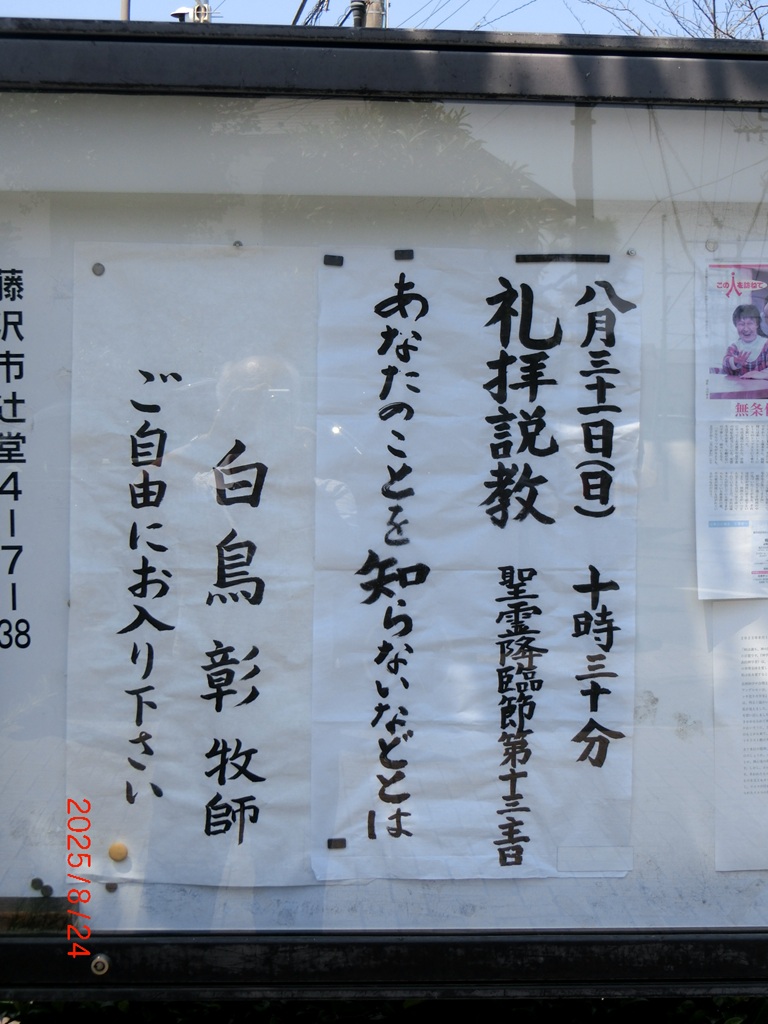 八月三十一日(日) 十時三十分
礼拝説教 聖霊降臨節第十三主日
あなたのことを知らないなどとは
白鳥彰牧師
ご自由にお入り下さい
藤沢市辻堂4-7-38
この人を訪ねて
無条
2025/8/24